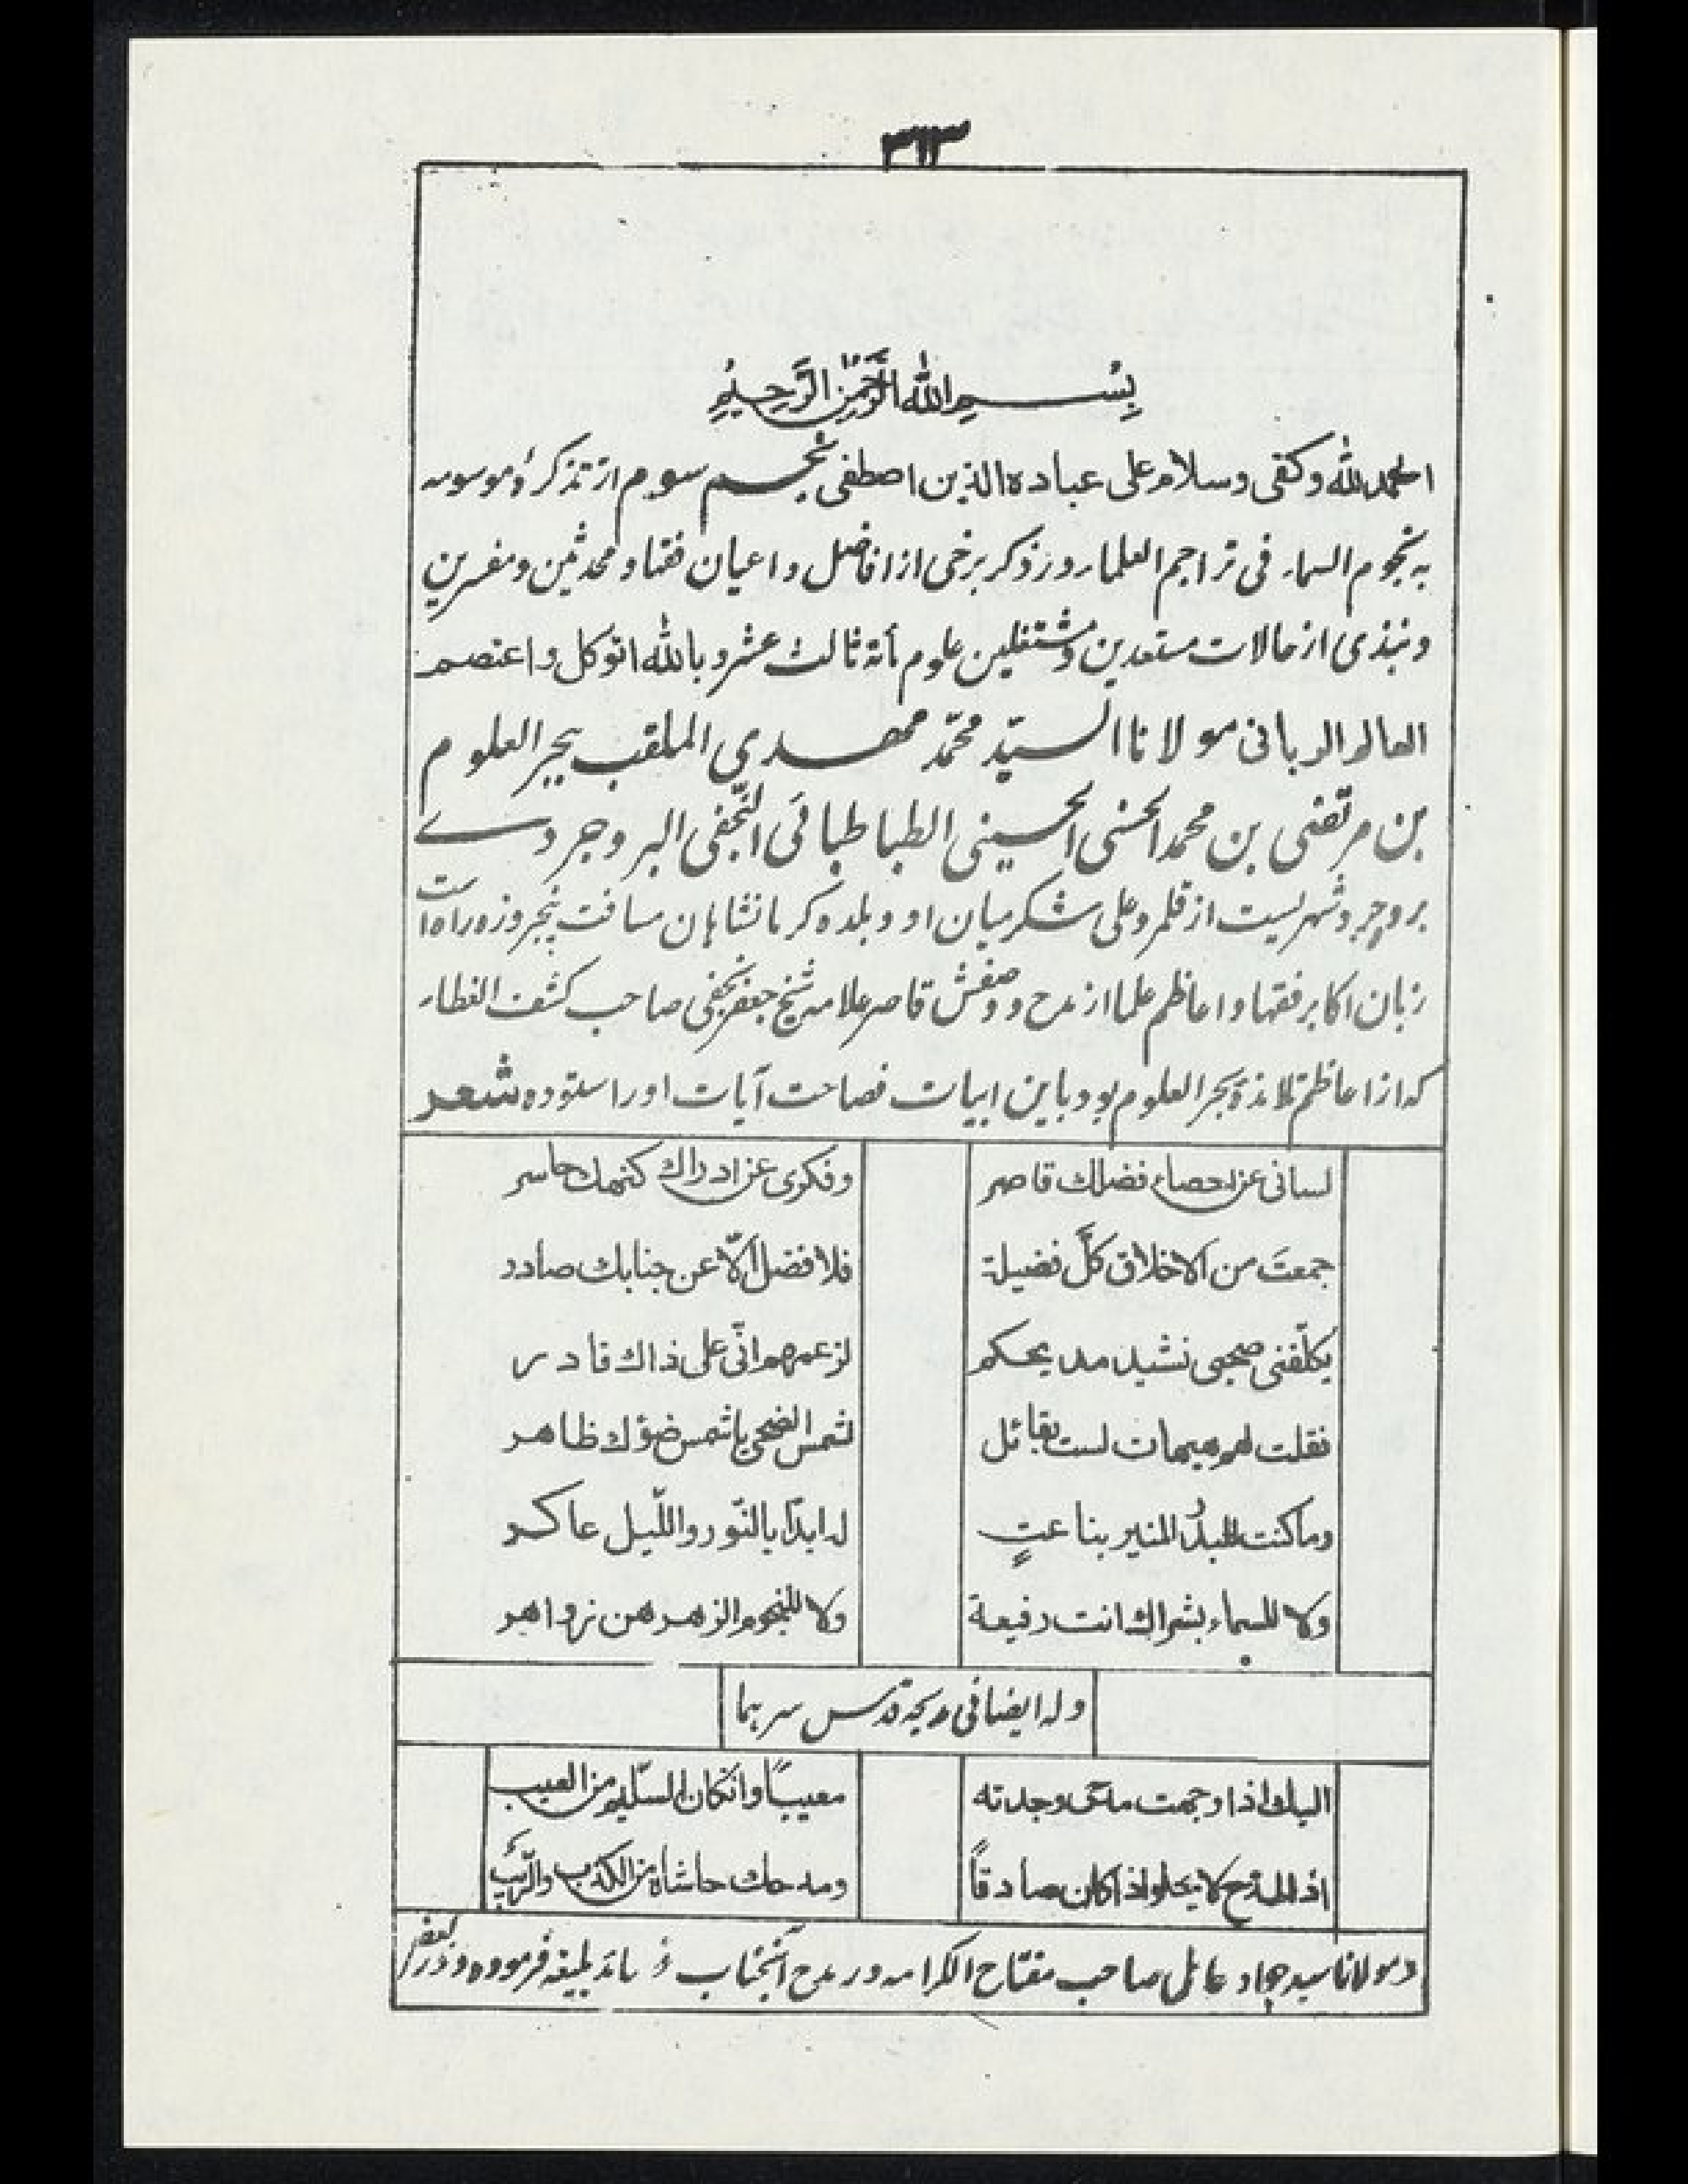 ٣١٣
بِسْمِ اللهِ الرَّحْمٰنِ الرَّحِيْمِ
الحمد لله وكفى وسلام على عباده الذين اصطفى نجم سوم از تذكرۀ موسومه
به نجوم السماء فى تراجم العلماء در ذكر برخى از افاضل و اعيان فقها و محدثين و مفسرين
و نبذى از حالات مستعدين و مشتغلين علوم مأته ثالث عشر و بالله اتوكل و اعتصم
العالم الربانى مولانا السيّد محمّد مهدى الملقب ببحر العلوم
بن مرتضى بن محمد الحسنى الحسينى الطباطبائى النّجفى البروجردے
بروجرد شهريست از قلمرو على شكر ميان او و بلده كرمانشاهان مسافت پنجروزه راه است
زبان اكابر فقها و اعاظم علما از مدح و وصفش قاصر علامه شيخ جعفر نجفى صاحب كشف الغطاء
كه از اعاظم تلامذۀ بحر العلوم بود باين ابيات فصاحت آيات او را ستوده شعر
لسانى عن احصاء فضلك قاصر وفكرى عن ادراك كنهك حاسر
جمعتَ من الاخلاق كلَّ فضيلة فلا فضل الّا عن جنابك صادر
يكلّفنى صحبى نشيد مديحكم لزعمهم انّى على ذاك قادر
فقلت لهم هيهات لست بقائل لشمس الضحى يا شمس ضوؤك ظاهر
وما كنت للبدر المنير بناعتٍ له ابداً بالنّور والليل عاكر
ولا للسماء بشراك انت رفيعة ولا للنجوم الزهر هن زواهر
وله ايضا فى مديحه قدس سرهما
اليك اذا وجهت مدحى وجدته معيباً وان كان السّليم من العيب
اذ المدح لا يحلو اذا كان صادقاً ومدحك حاشاه من الكذب والرّيب
و مولانا سيد جواد عاملى صاحب مفتاح الكرامه در مدح آنجناب قصائد بليغه فرموده و در بعض